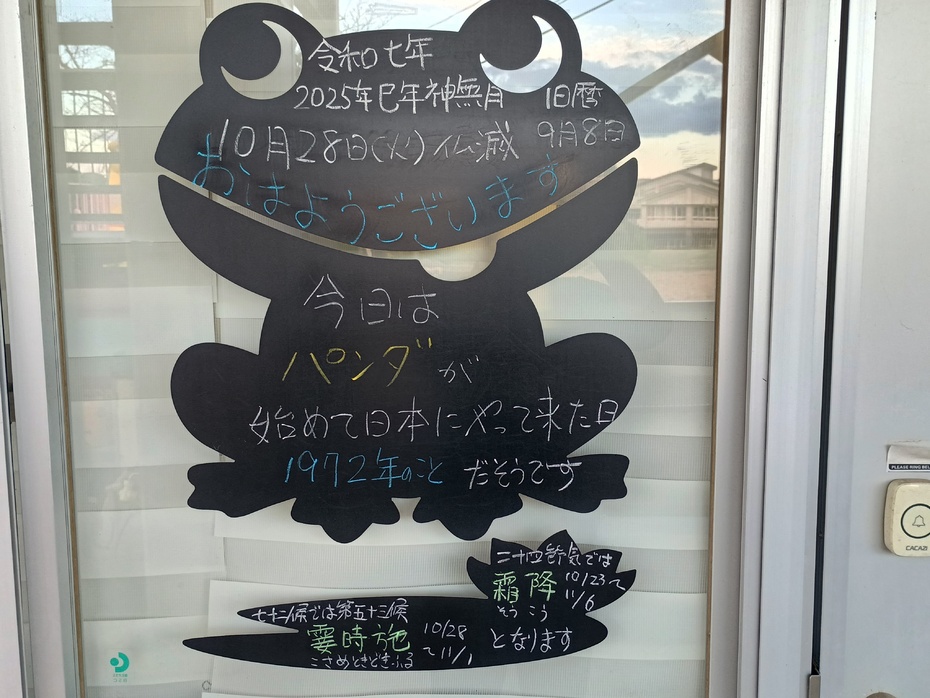 令和七年
2025年巳年神無月 旧暦
10月28日(火)仏滅 9月8日
おはようございます
今日は
パンダが
始めて日本にやって来た日
1972年のこと だそうです
二十四節気では
霜降 10/23~11/6
そうこう
となります
七十二候では第五十三候
霎時施 10/28~11/1
こさめときどきふる
PLEASE RING BELL
CACAZI